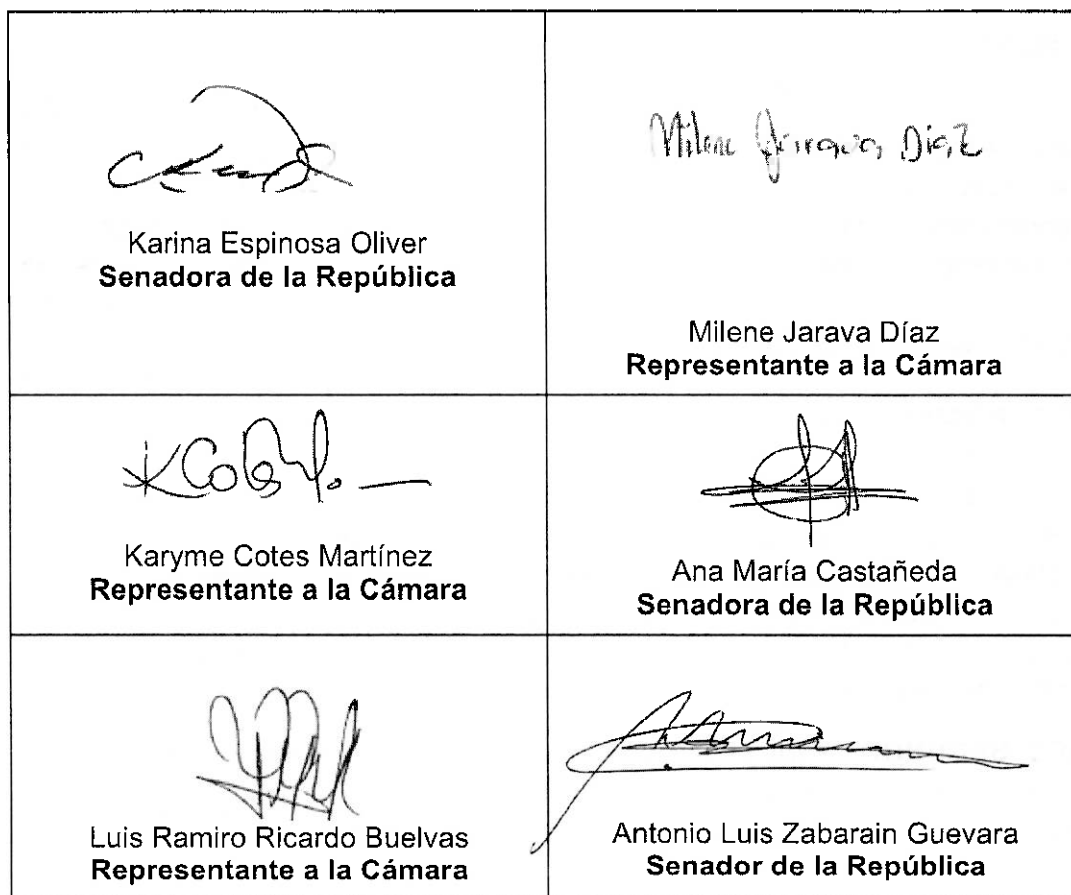 Karina Espinosa Oliver
Senadora de la República
Milene Jarava Diaz
Milene Jarava Díaz
Representante a la Cámara
KCotes
Karyme Cotes Martínez
Representante a la Cámara
Ana María Castañeda
Senadora de la República
Luis Ramiro Ricardo Buelvas
Representante a la Cámara
Antonio Luis Zabarain Guevara
Senador de la República